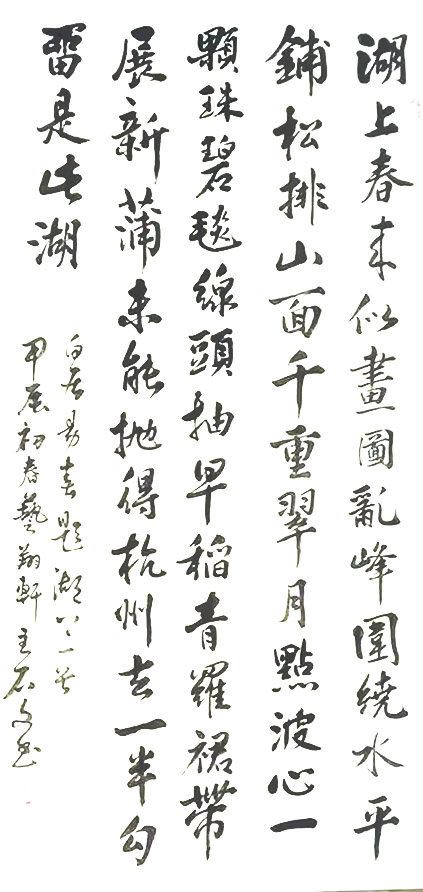 湖上春来似畫圖亂峰圍繞水平
鋪松排山面千重翠月點波心一
顆珠碧毯線頭抽早稻青羅裙帶
展新蒲未能抛得杭州去一半勾
留是此湖
白居易春題湖上一首
甲辰初春藝翔軒主石文书